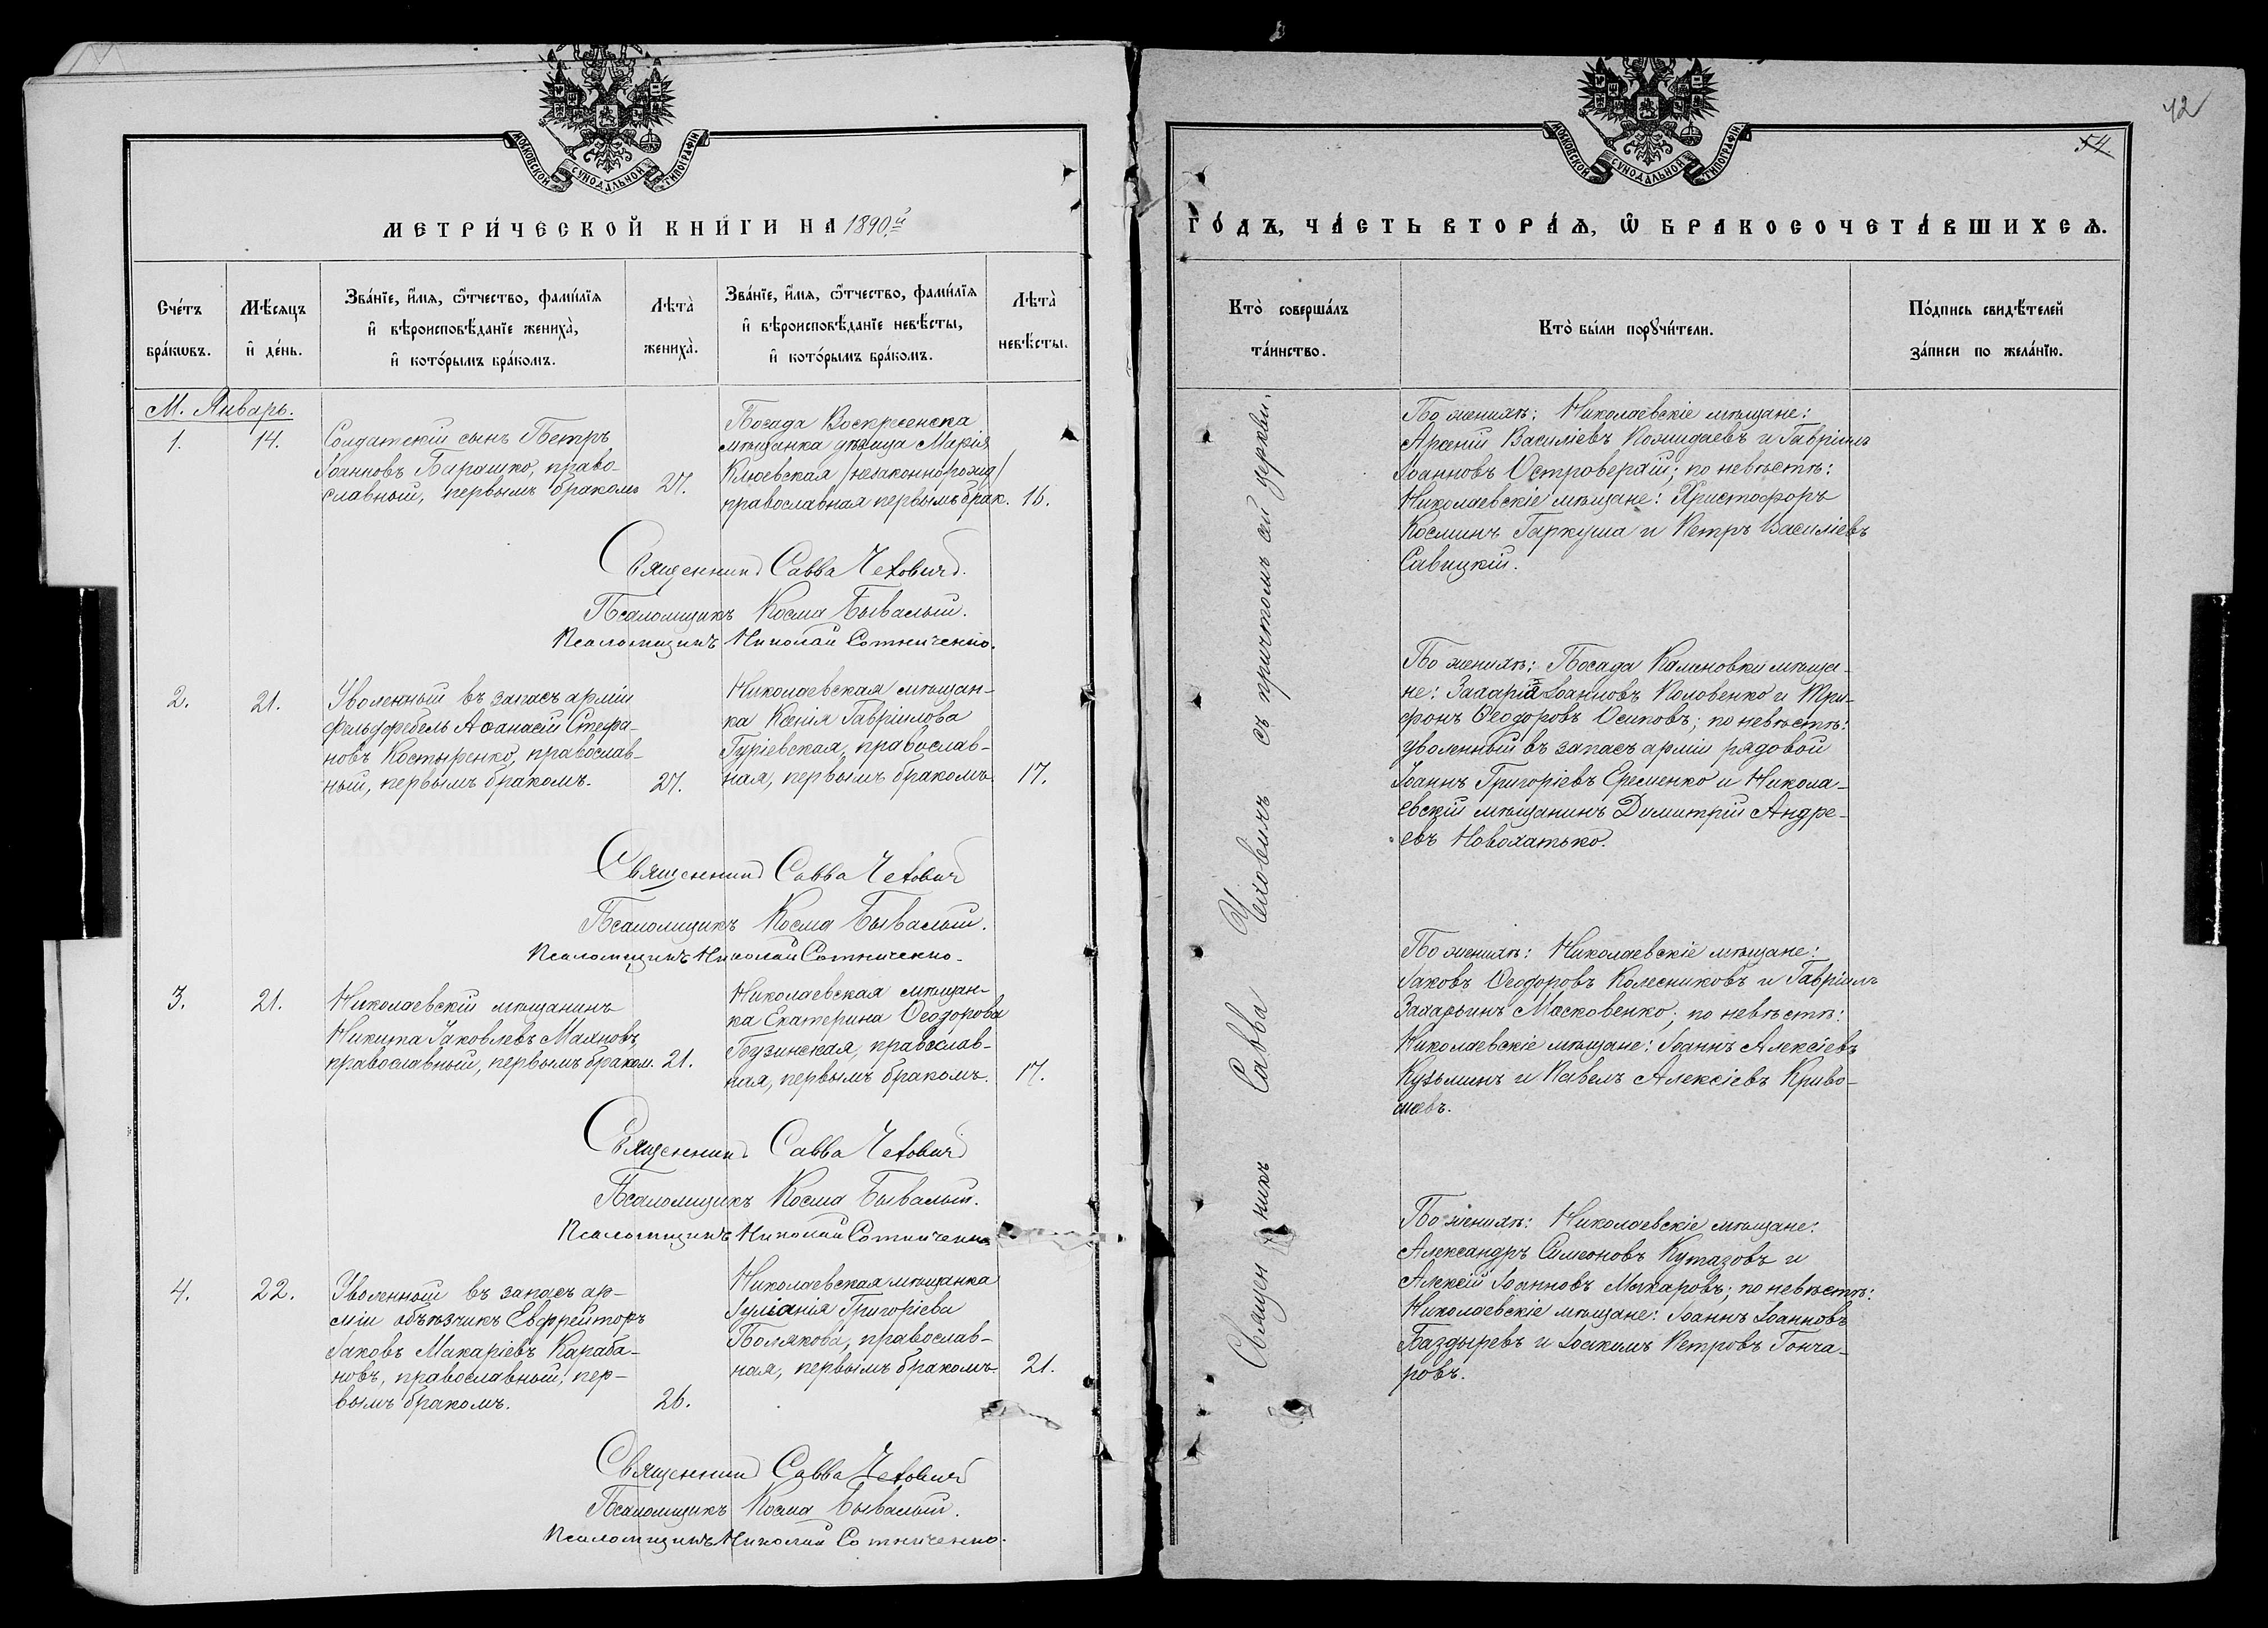 42
54.
МОСКОВСКОЙ СѴНОДАЛЬНОЙ ТИПОГРАФІИ
МОСКОВСКОЙ СѴНОДАЛЬНОЙ ТИПОГРАФІИ
МЕТРИ́ЧЕСКОЙ КНИ́ГИ НА 1890й
ГО́ДЪ, ЧА́СТЬ ВТОРА́Ѧ, Ѽ БРАКОСОЧЕТА́ВШИХСѦ.
Сче́тъ
бра́кѡвъ.
Мѣ́сѧцъ
и҆ де́нь.
Зва́нїе, и҆́мѧ, ѻ҆́тчество, фамі́лїѧ
и҆ вѣроисповѣ́данїе жениха̀,
и҆ кото́рымъ бра́комъ.
Лѣта̀
жениха̀.
Зва́нїе, и҆́мѧ, ѻ҆́тчество, фамі́лїѧ
и҆ вѣроисповѣ́данїе невѣ́сты,
и҆ кото́рымъ бра́комъ.
Лѣта̀
невѣ́сты.
Кто̀ соверша́лъ
та́инство.
Кто̀ бы́ли порꙋчи́тели.
По́дпись свидѣ́телей
за́писи по жела́нїю.
М. Январь.
1.
14.
Солдатскій сынъ Петръ
Іоанновъ Барашко, право-
славный, первымъ бракомъ
27.
Посада Воскресенска
мѣщанка дѣвица Марія
Клюевская /незаконнорожд/
православная первымъ брак.
16.
Священникъ Савва Чеховичъ.
Псаломщикъ Косма Бывалый.
Псаломщикъ Николай Сотниченко.
2.
21.
Уволенный въ запасъ арміи
фельдфебель Аѳанасій Стефа-
новъ Костыренко, православ-
ный, первымъ бракомъ.
27.
Николаевская мѣщан-
ка Ксенія Гавріилова
Гуріевская, православ-
ная, первымъ бракомъ.
17.
Священникъ Савва Чеховичъ
Псаломщикъ Косма Бывалый.
Псаломщикъ Николай Сотниченко.
3.
21.
Николаевскій мѣщанинъ
Никита Іаковлевъ Махновъ,
православный, первымъ браком.
21.
Николаевская мѣщан-
ка Екатерина Ѳеодорова
Бузинская, православ-
ная, первымъ бракомъ.
17.
Священникъ Савва Чеховичъ
Псаломщикъ Косма Бывалый.
Псаломщикъ Николай Сотниченко
4.
22.
Уволенный въ запасъ ар-
міи объѣзчикъ Евфрейторъ
Іаковъ Макаріевъ Караба-
новъ, православный, пер-
вымъ бракомъ.
26.
Николаевская мѣщанка
Іуліанія Григоріева
Полякова, православ-
ная, первымъ бракомъ.
21.
Священникъ Савва Чеховичъ
Псаломщикъ Косма Бывалый.
Псаломщикъ Николай Сотниченко.
Священникъ Савва Чеховичъ съ причтомъ сей церкви.
По женихѣ: Николаевскіе мѣщане:
Арсеній Василіевъ Комидаевъ и Гавріилъ
Іоанновъ Островерхій; по невѣстѣ:
Николаевскіе мѣщане: Христофоръ
Косминъ Гаркуша и Петръ Василіевъ
Савицкій.
По женихѣ: Посада Калиновки мѣща-
не: Захарія Іоанновъ Коловенко и Три-
фонъ Ѳеодоровъ Осиповъ; по невѣстѣ:
уволенный въ запасъ арміи рядовой
Іоаннъ Григоріевъ Еременко и Никола-
евскій мѣщанинъ Димитрій Андре-
евъ Новохатько.
По женихѣ: Николаевскіе мѣщане:
Іаковъ Ѳеодоровъ Колесниковъ и Гавріилъ
Захарьинъ Московенко; по невѣстѣ:
Николаевскіе мѣщане: Іоаннъ Алексіевъ
Кузьминъ и Павелъ Алексіевъ Криво-
шеевъ.
По женихѣ: Николаевскіе мѣщане:
Александръ Симеоновъ Кутазовъ и
Алексій Іоанновъ Макаровъ; по невѣстѣ:
Николаевскіе мѣщане: Іоаннъ Іоанновъ
Баздыревъ и Іоакимъ Петровъ Гонча-
ровъ.